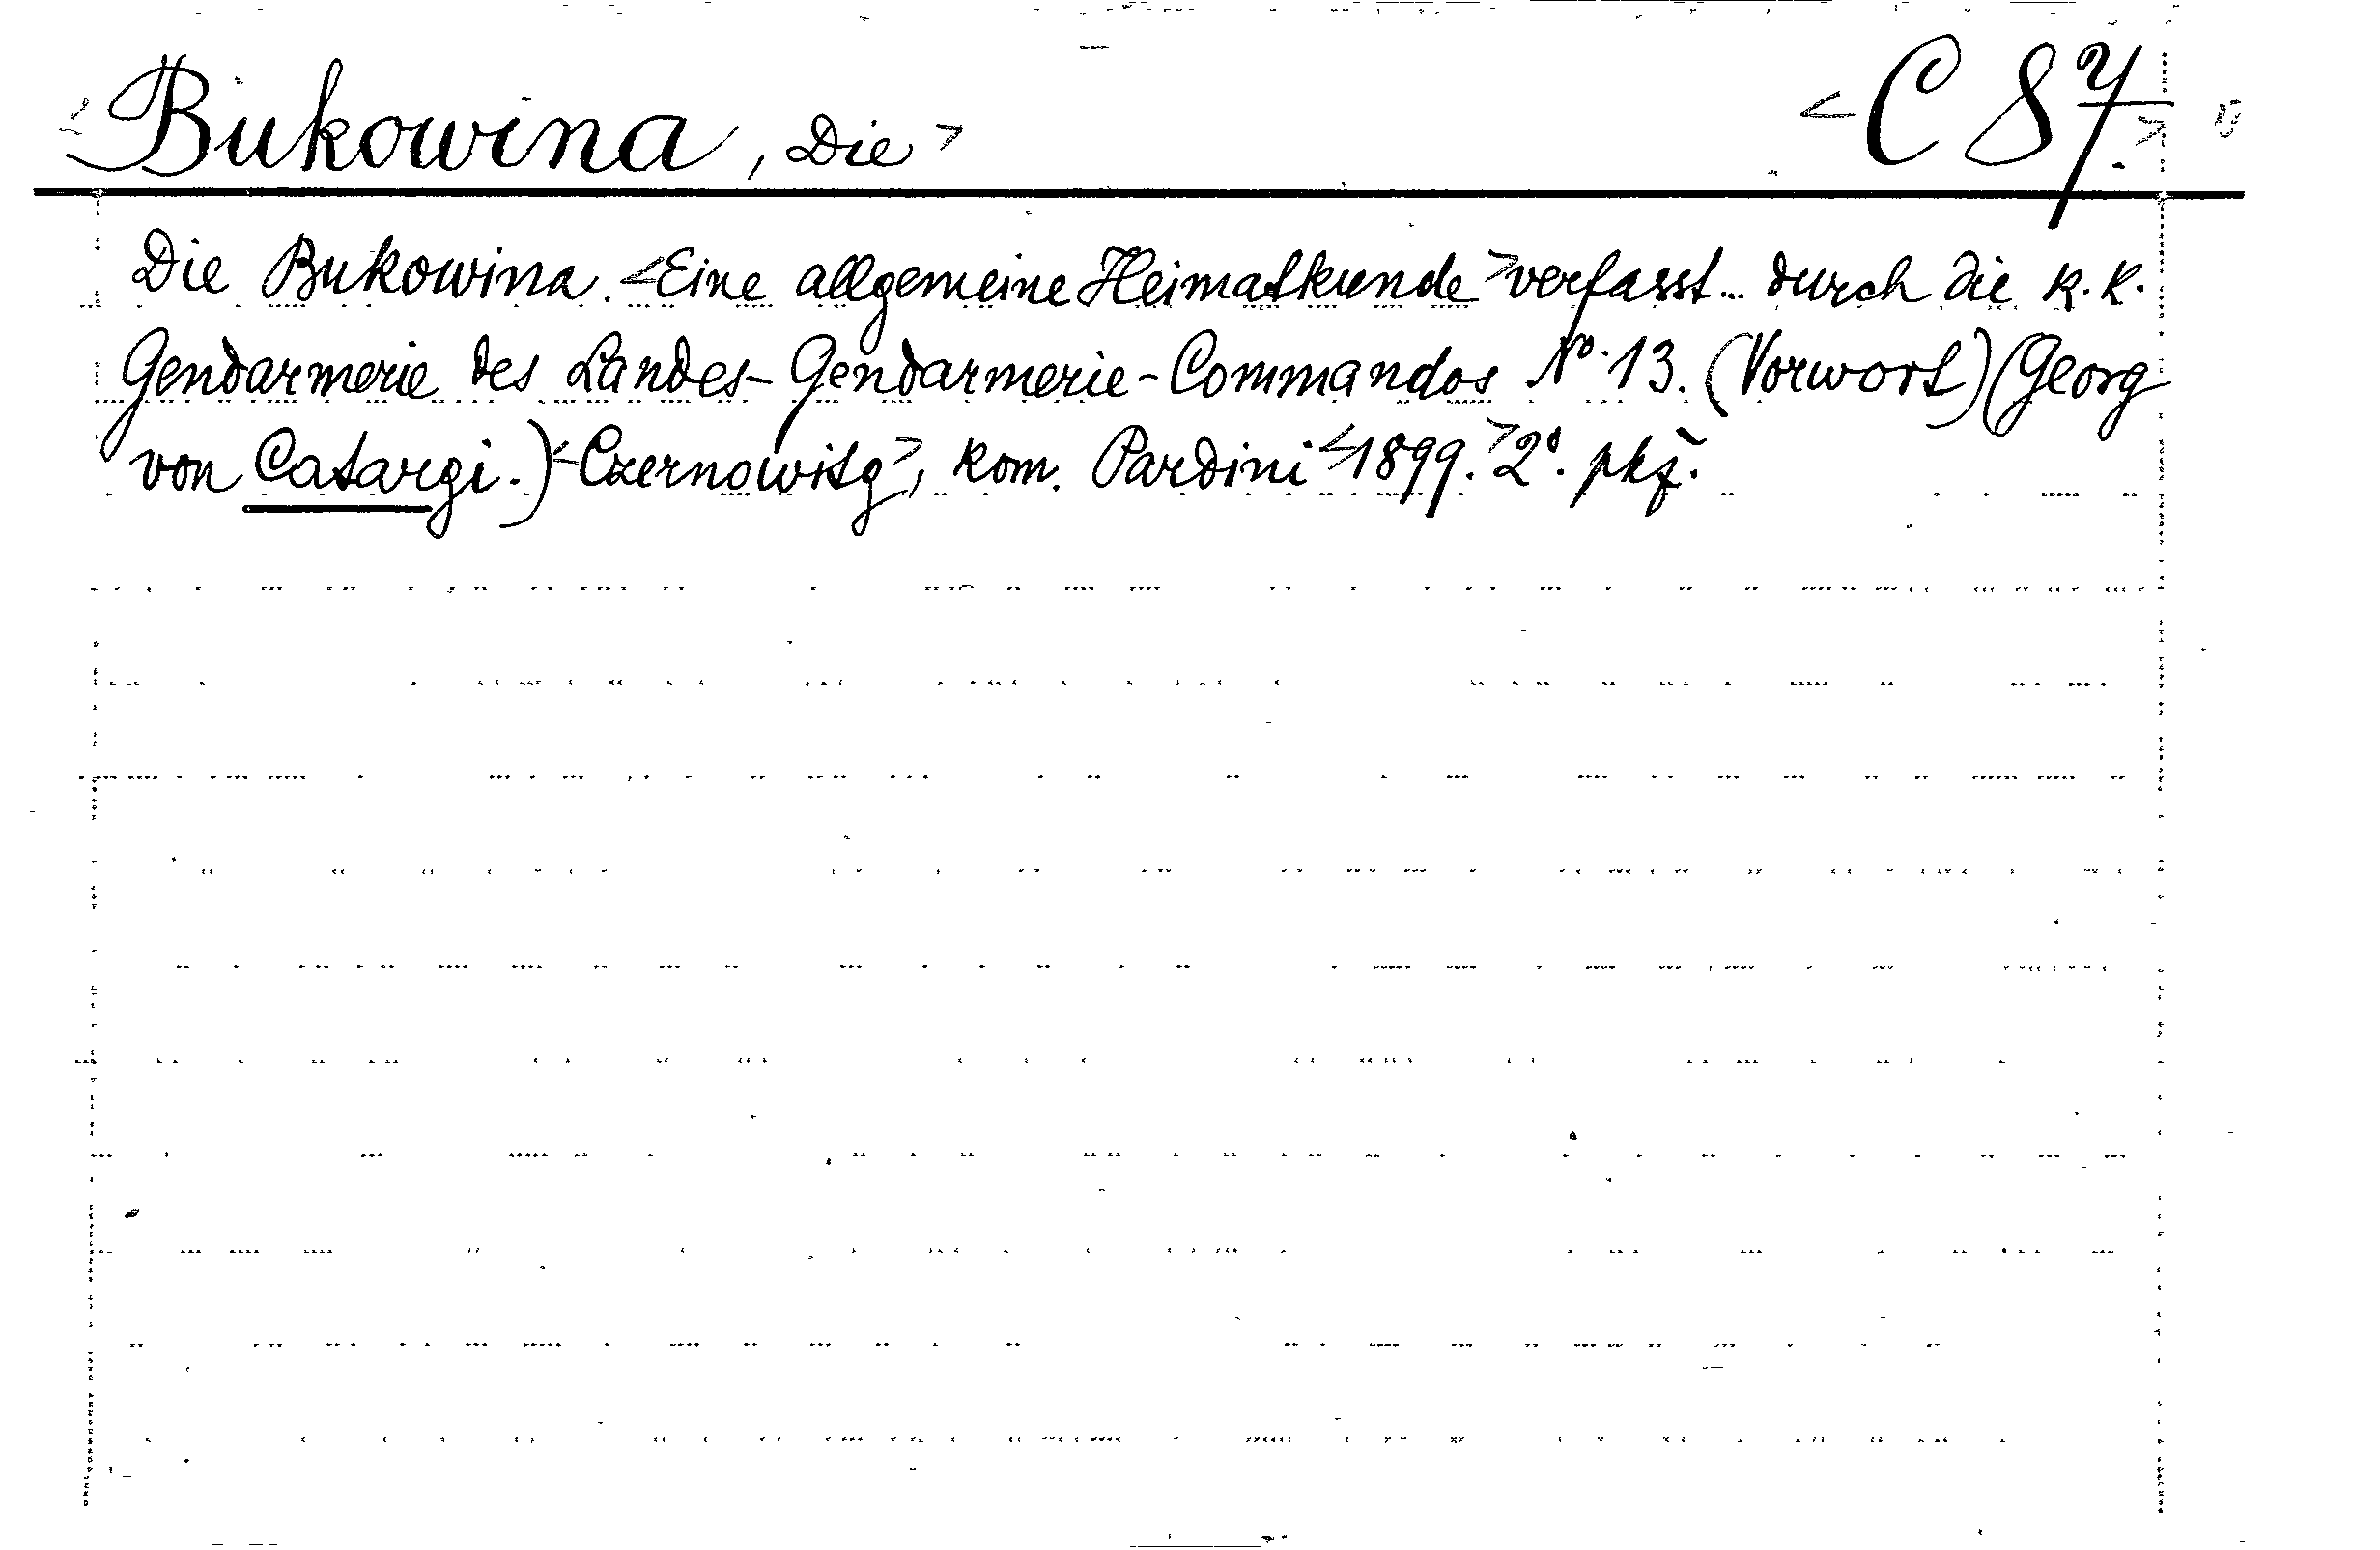 Bukowina, Die> <C 87.>
Die Bukowina. <Eine allgemeine Heimatkunde> verfasst... durch die k. k.
Gendarmerie des Landes-Gendarmerie-Commandos No. 13. (Vorwort) (Georg
von Catargi.) <Czernowitz>, kom. Pardini <1899.> 2°. pkf.